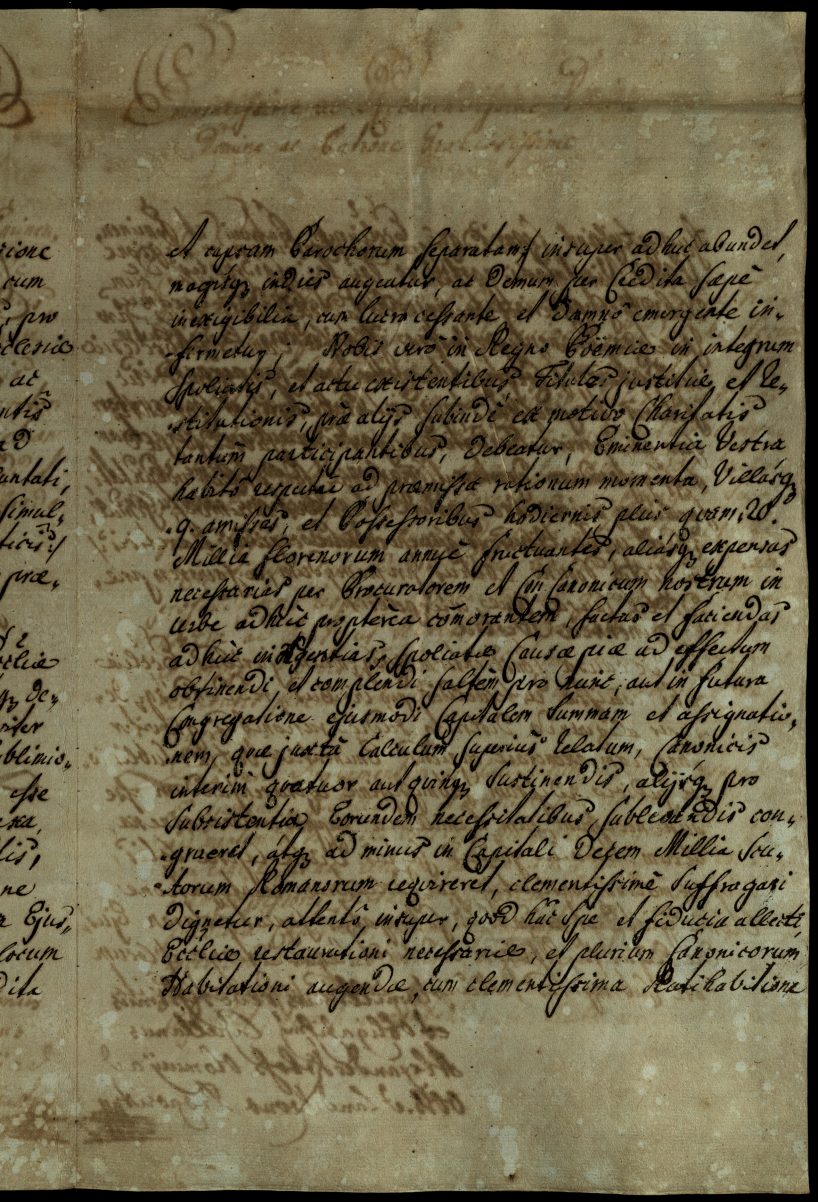 et cupsam Parochorum separatam/ insuper adhuc abundet,
magisq; indies augeatur, ac demum per Credita sæpè
inexigibilia, cum lucro cessante, et damno emergente in-
-firmetur; Nobis verò in Regno Boëmiæ in integrum
Spoliatis, et actu existentibus Titulus justitiæ, et Re-
-stitutionis, præ alijs subinde ex motivo Charitatis
tantum participantibus, debeatur, Eminentia Vestra
habitô respectu ad præmissa rationum momenta, Villasq;
q. amissas, et Possessoribus hodiernis plus quam 20.
Millia florenorum annuè fructuantes, aliasq; expensas
necessarias per Procuratorem et Con Canonicum nostrum in
urbe adhuc propterea com̄orantem, factas et faciendas
adhuc indigentias, spoliatæ Causæ piæ ad effectum
obtinendi, et complendi saltem pro nunc, aut in futura
Congregatione ejusmodi Capitalem Summam et assignatio-
-nem, quæ juxta Calculum superius relatum, Canonicis
interim quatuor aut quinq; sustinendis, alijsq; pro
Subsistentia Eorundem necessitatibus sublevandis con-
-grueret, atq; ad minus in Capitali Decem Millia Scu-
-torum Romanorum requireret, clementissimè suffragari
dignetur, attentô insuper, quod hac spe et fiducia allecti
Eccliæ restaurationi necessariæ, et plurium Canonicorum
Habitationi augendæ, cum clementissima Ratihabitione
rione
cum
pro
ac
ad
luntati,
simul-
præ-
de-
ublimio-
esse
ne
Ejus-
locum
dita